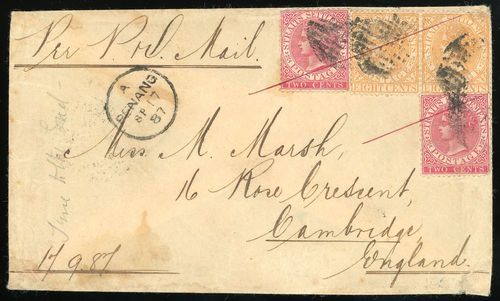 Per P.&O. Mail.
STRAITS SETTLEMENTS
POSTAGE
TWO CENTS
EIGHT CENTS
EIGHT CENTS
STRAITS SETTLEMENTS
POSTAGE
TWO CENTS
A
PENANG
SP 17
87
Miss M. Marsh,
16 Rose Crescent,
Cambridge,
England.
17 9.87